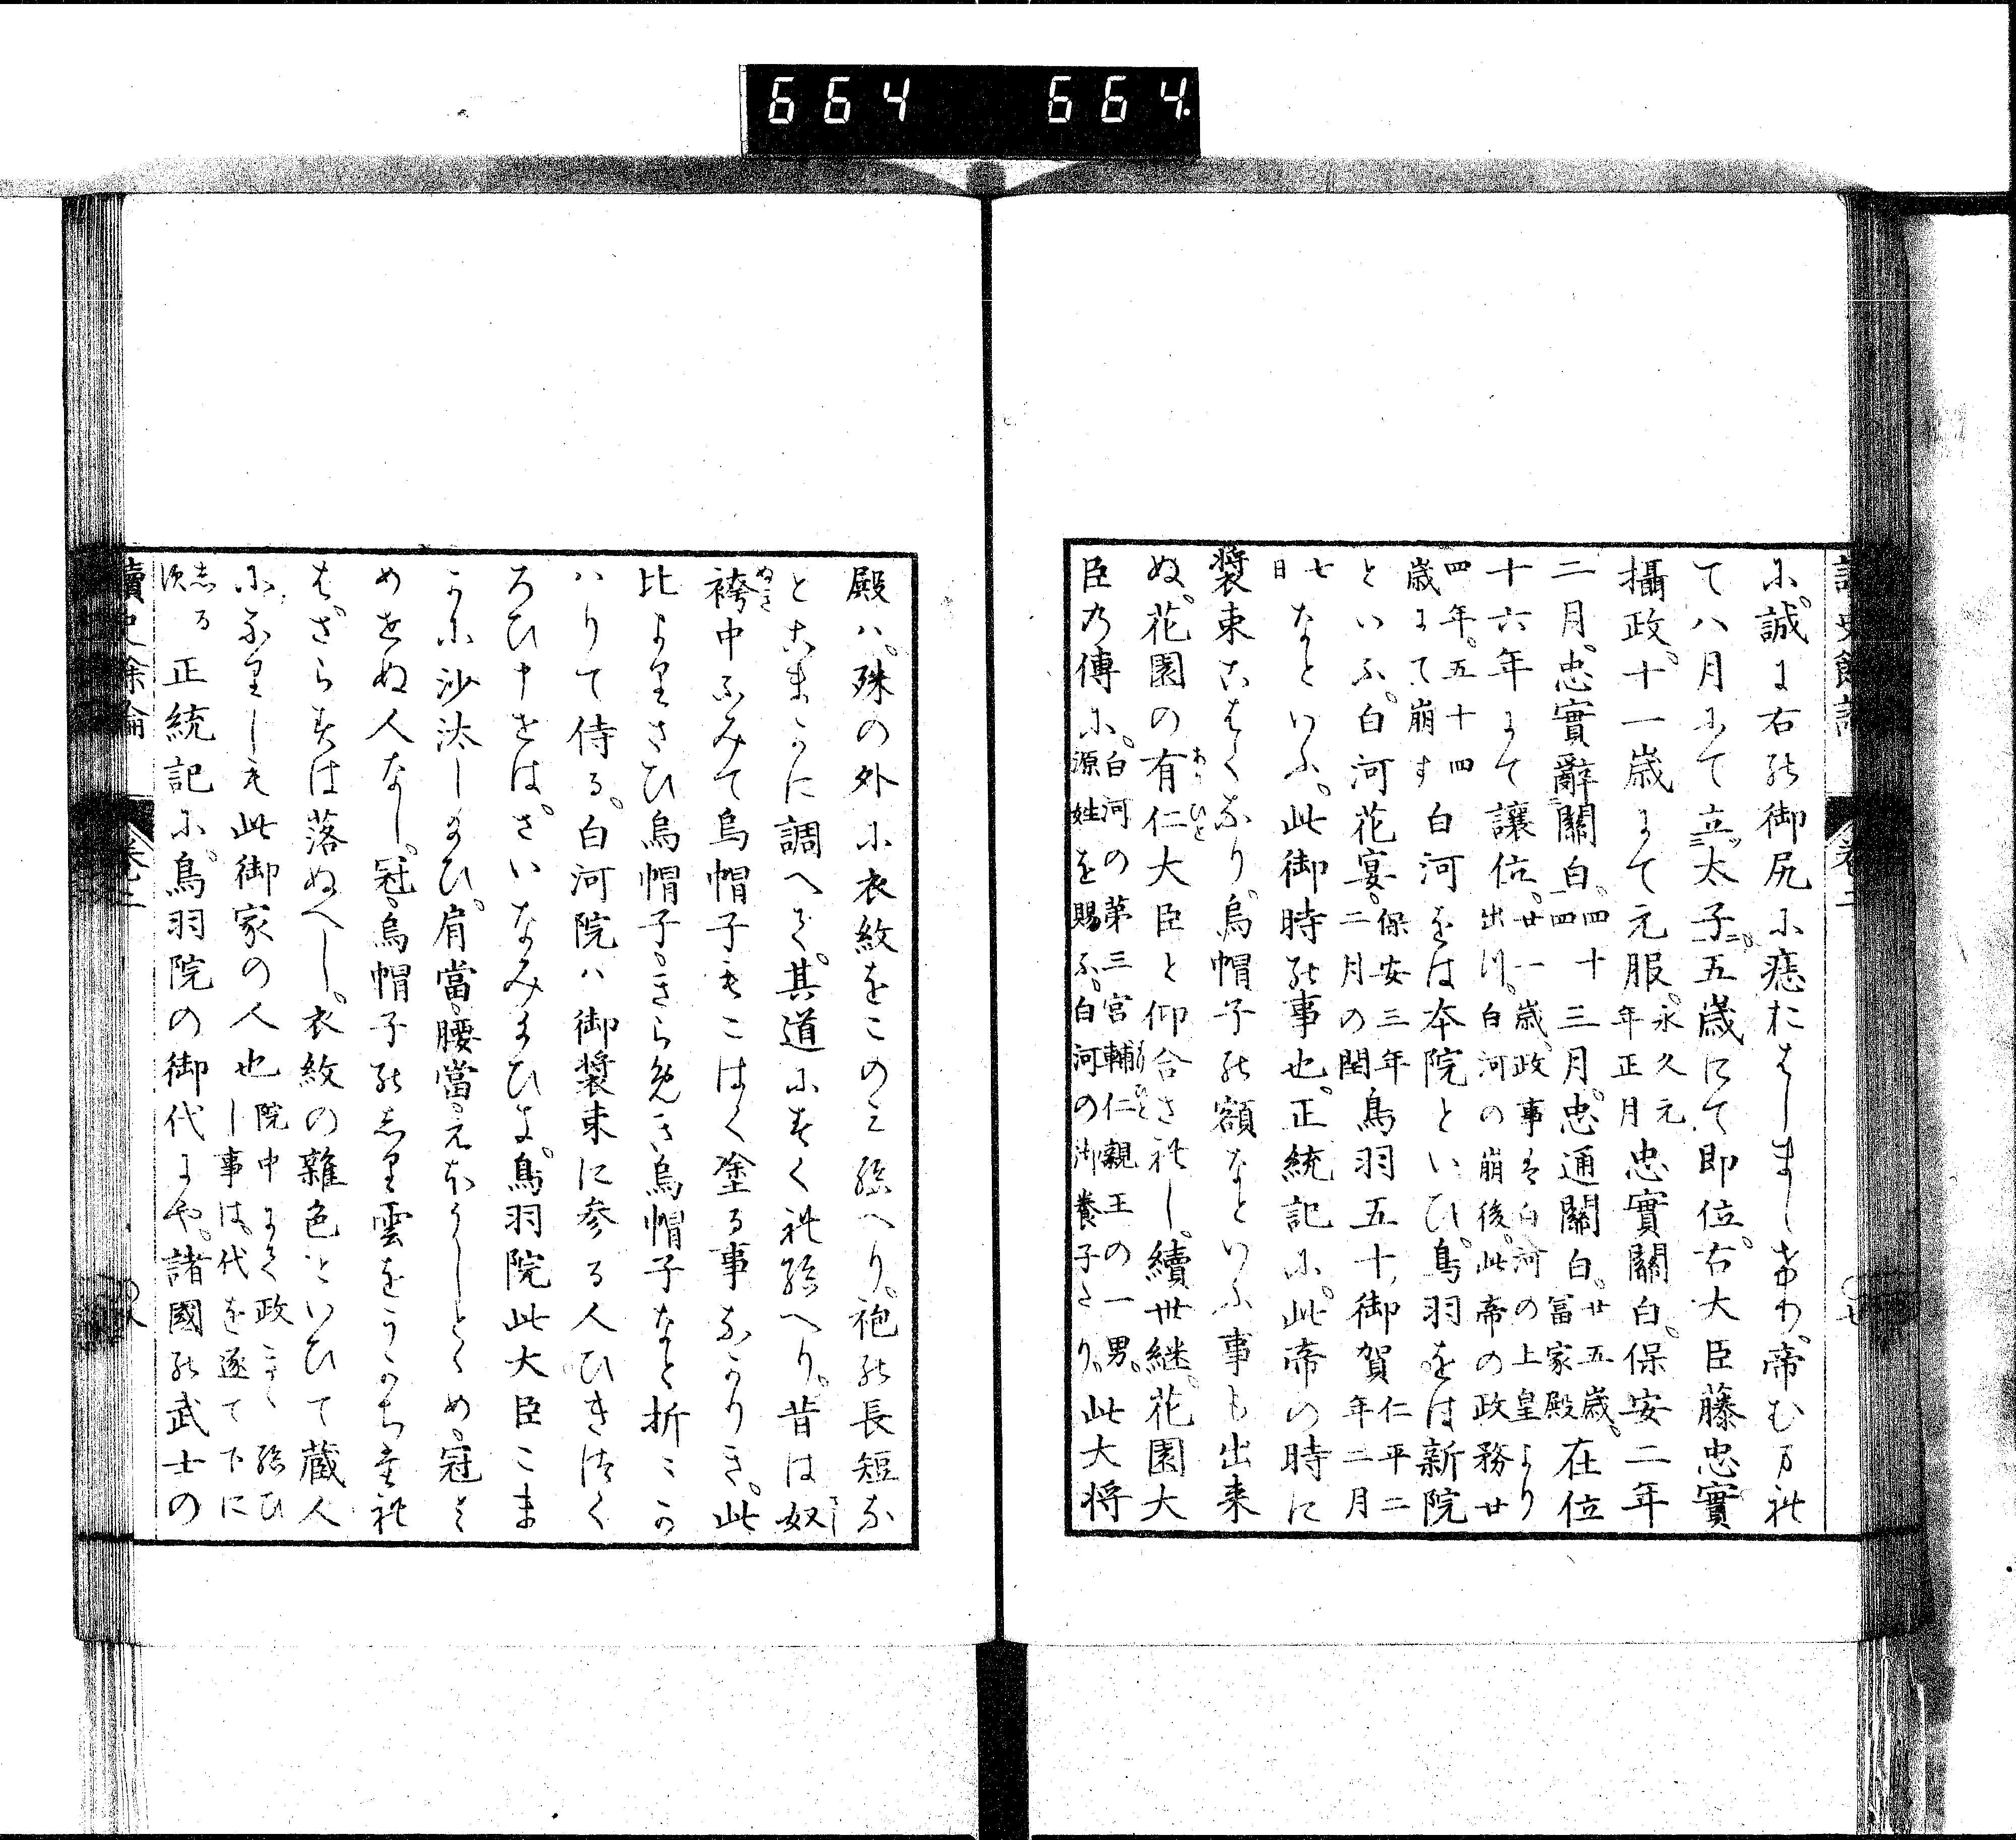 664 664
に。誠に右の御尻に痣おはしましきか。帝むまれ
て八月にて立太子。五歳にて即位。右大臣藤忠實
攝政。十一歳にて元服。永久元年正月 忠實關白。保安二年
二月。忠實辭關白。四十四 三月。忠通關白。廿五歳。冨家殿 在位
十六年にて讓位。廿一歳。政事は白河の上皇より出川。白河の崩後。此帝の政務廿
四年。五十四歳にて崩す 白河をは本院といひ。鳥羽をは新院
といふ。白河花宴。保安三年二月の閏 鳥羽五十御賀 仁平二年二月
七日 なといふ。此御時の事也。正統記に。此帝の時に
裝束こはくなり。烏帽子の額なといふ事も出来
ぬ。花園の有仁大臣と仰合されし。續世継。花園大
臣乃傳に。白河の第三宮輔仁親王の一男。源姓を賜ふ。白河の御養子たり。此大将
殿ハ。殊の外に衣紋をこのみ給へり。袍の長短な
とこまかに調へて。其道にすくれ給へり。昔は奴
袴中ふみて烏帽子もこはく塗る事なかりき。此
比よりさひ烏帽子。きらめき烏帽子なと折々か
ハりて侍る。白河院ハ御裝束に参る人ひきつく
ろひ申せは。さいなみ給ひき。鳥羽院此大臣こま
かに沙汰し給ひ。肩當。腰當。えほうしとゝめ。冠と
めせぬ人なし。冠。烏帽子のしり雲をうかちけれ
はさらすは落ぬへし。衣紋の雜色といひて藏人
になりしも此御家の人也 院中にて政きこし給ひし事は。代を逐て下に
しるす 正統記に。鳥羽院の御代にや。諸國の武士の
讀史餘論 卷之二